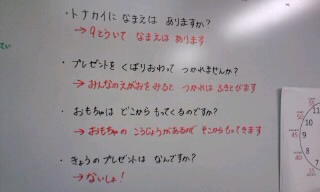 ・トナカイに なまえは ありますか?
→9とういて なまえは あります
・プレゼントを くばりおわって つかれませんか?
→みんなのえがおをみると つかれは ふきとびます
・おもちゃは どこから もってくるのですか?
→おもちゃの こうじょうがあるので そこからもってきます
・きょうのプレゼントは なんですか?
→ないしょ!
11
10
9
8
7
50
45
40
35